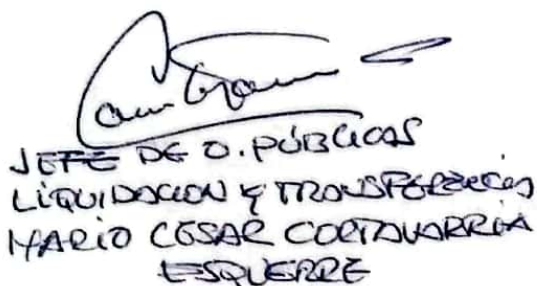 JEFE DE O. PÚBLICAS
LIQUIDACION Y TRANSFERENCIAS
MARIO CESAR CORTAVARRIA
ESQUERRE